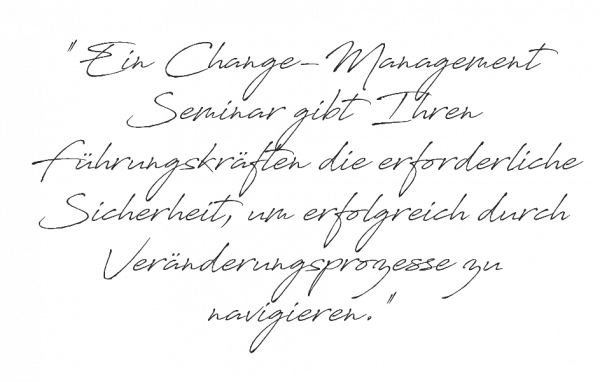 "Ein Change-Management
Seminar gibt Ihren
Führungskräften die erforderliche
Sicherheit, um erfolgreich durch
Veränderungsprozesse zu
navigieren."